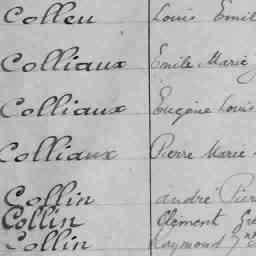 Colleu Louis Emil
Colliaux Emile Marie
Colliaux Eugène Louis
Colliaux Pierre Marie
Collin andré Pier
Collin Clément
Collin Raymond